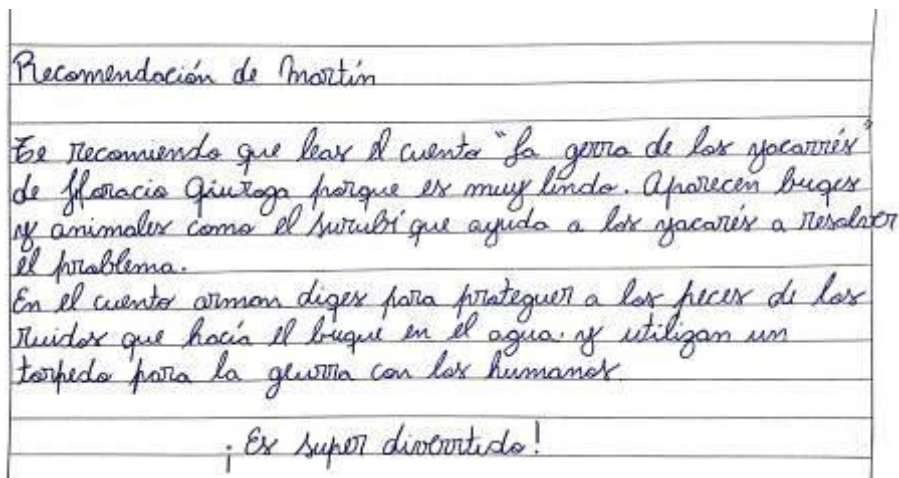 Recomendación de Martín
Te recomiendo que leas el cuento "La gerra de los yacarrés"
de Horacio Qiuroga porque es muy lindo. Aparecen buges
y animales como el surubí que ayuda a los yacarés a resolver
el problema.
En el cuento arman diges para proteguer a los peces de los
ruidos que hacía el buque en el agua. y utilizan un
torpedo para la geurra con los humanos.
¡Es super divertido!